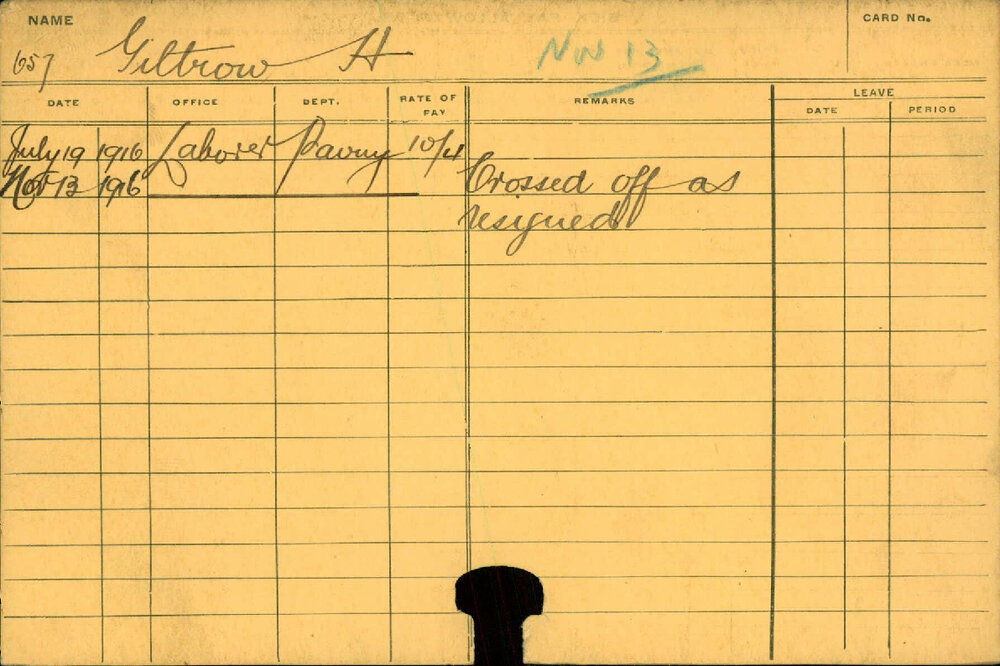 NAME
CARD No.
657 Giltrow H
Nov 13
DATE OFFICE DEPT. RATE OF PAY REMARKS LEAVE
DATE PERIOD
July 19 1916 Laborer Paving 10/4
Nov 13 1916 Crossed off as
resigned